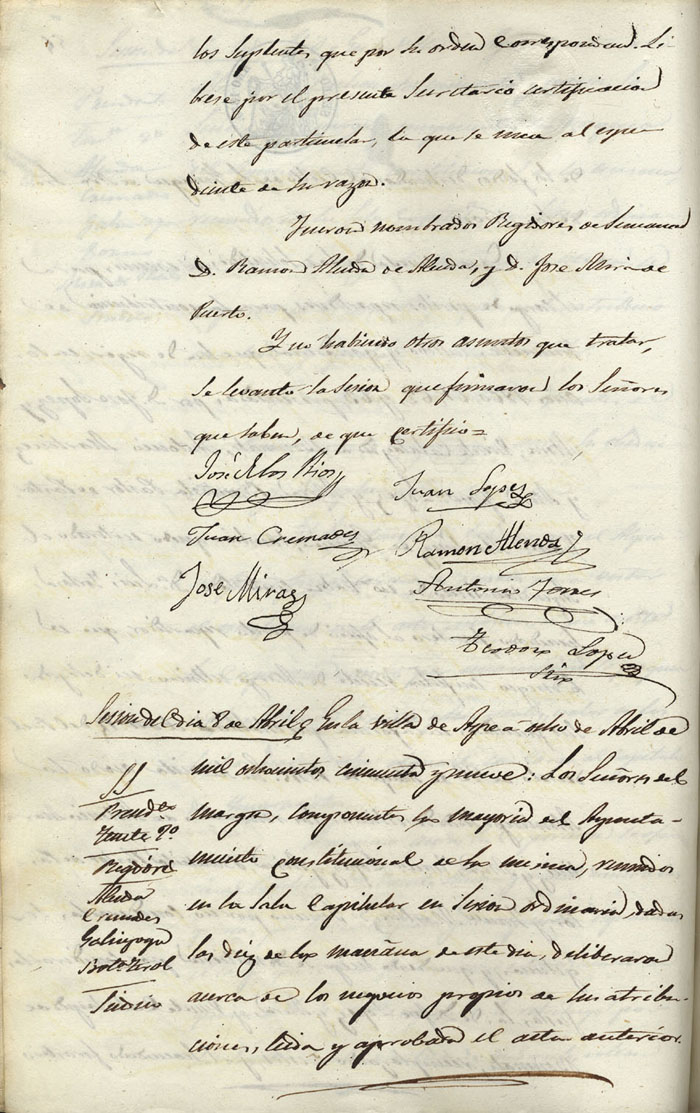 los Suplentes que por su orden correspondan. Li-
brese por el presente Secretario certificacion
de este particular, la que se una al espe-
diente de su razon.
Fueron nombrados Regidores de Semana
D. Ramon Alenda de Alenda, y D. Jose Mira de
Puerto.
Y no habiendo otros asuntos que tratar,
se levantó la sesion que firmaron los Señores
que saben, de que certifico=
José de los Rios
Juan Lopez
Juan Cremades
Ramon Alenda
Jose Miras
Antonio Torres
Teodoro Lopez
Srio
Sesion del dia 8 de Abril
En la villa de Aspe á ocho de Abril de
mil ochocientos cincuenta y nueve: Los Señores del
margen, componentes la mayoria del Ayunta-
miento constitucional de la misma, reunidos
en la Sala Capitular en Sesion ordinaria, dadas
las diez de la mañana de este dia, deliberaron
acerca de los negocios propios de sus atribu-
ciones, leida y aprobada el acta anterior.
SS
Presid.te
Tente 2º
Regidores
Alenda
Cremades
Galinzoga
Botella
Sindico